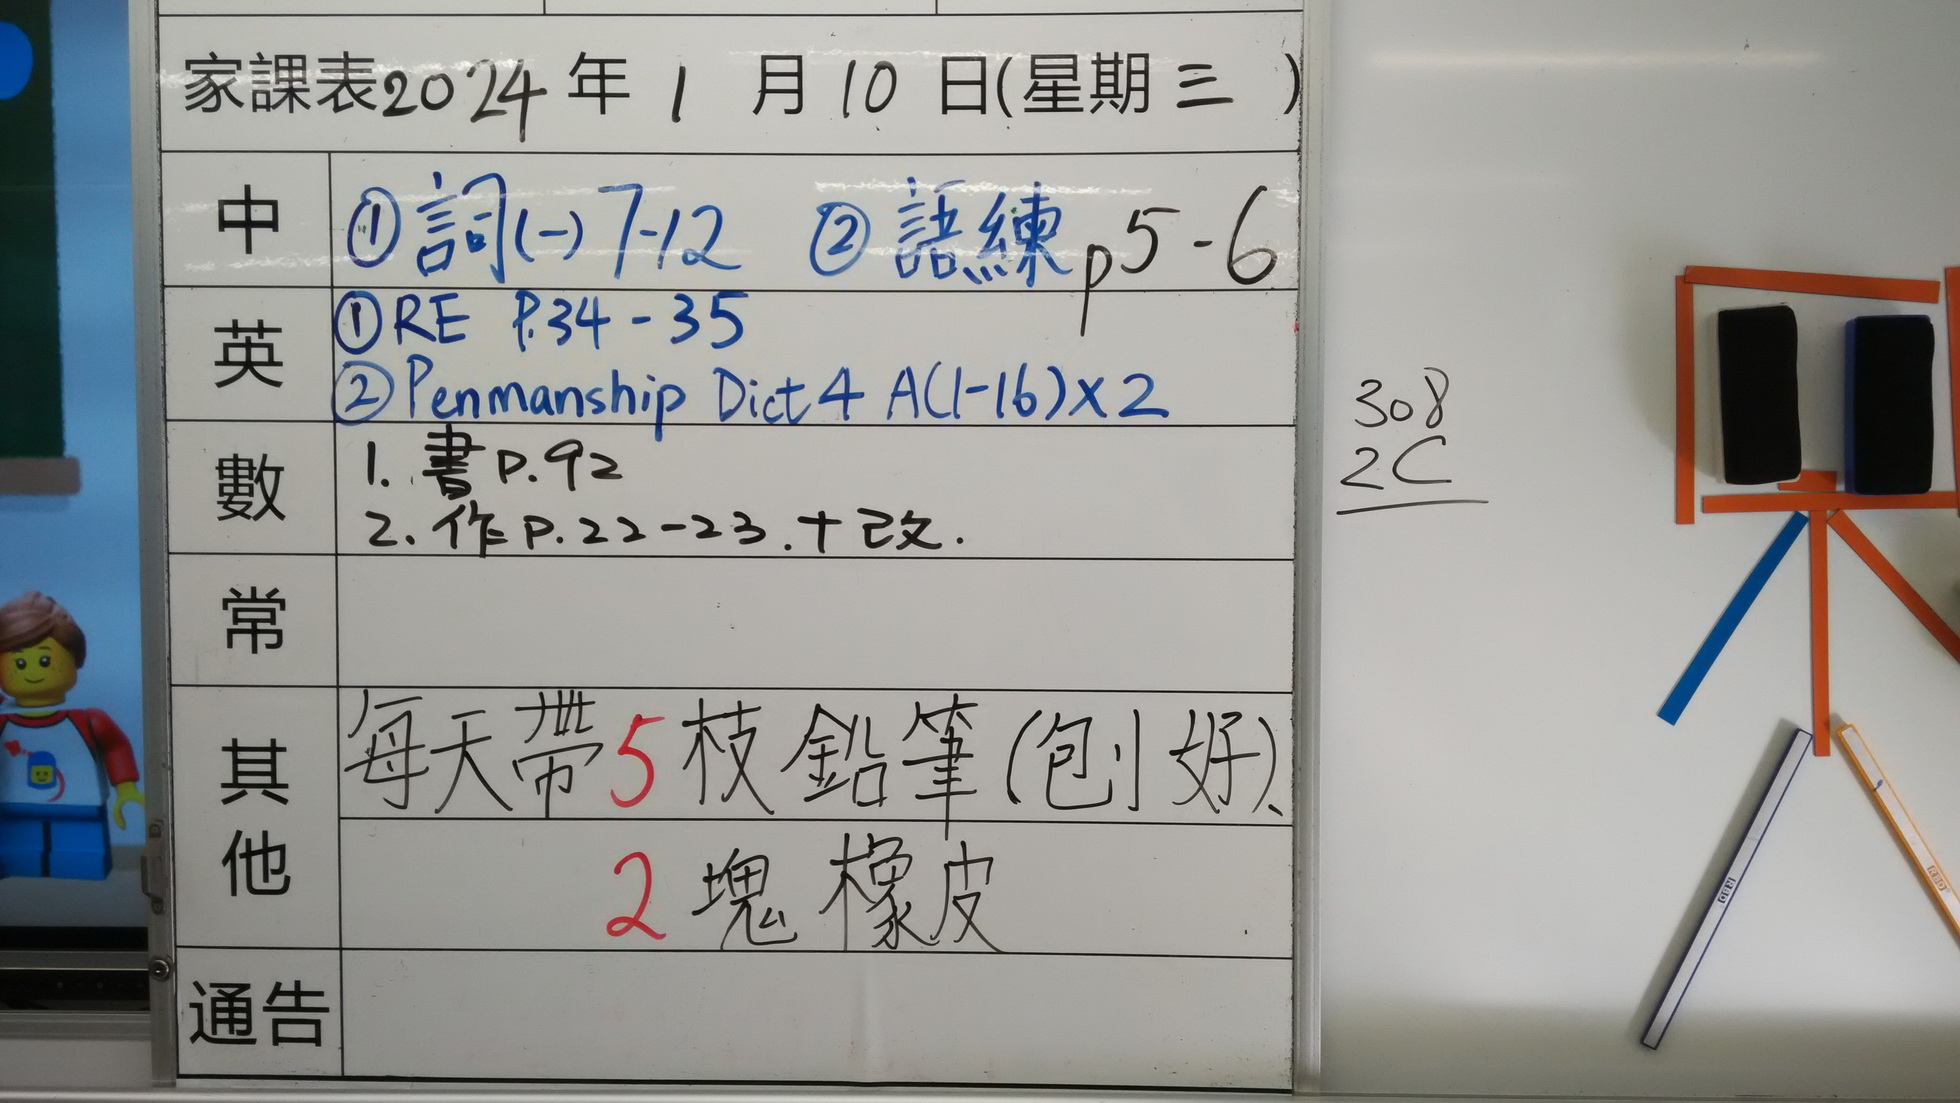 家課表2024年1月10日(星期三)
中 ①詞(一)7-12 ②語練p5-6
英 ①RE P.34-35
②Penmanship Dict 4 A(1-16)x2
數 1. 書P.92
2. 作P.22-23.+改.
常
其他 每天帶5枝鉛筆(刨好)、
2塊橡皮
通告
308
2C